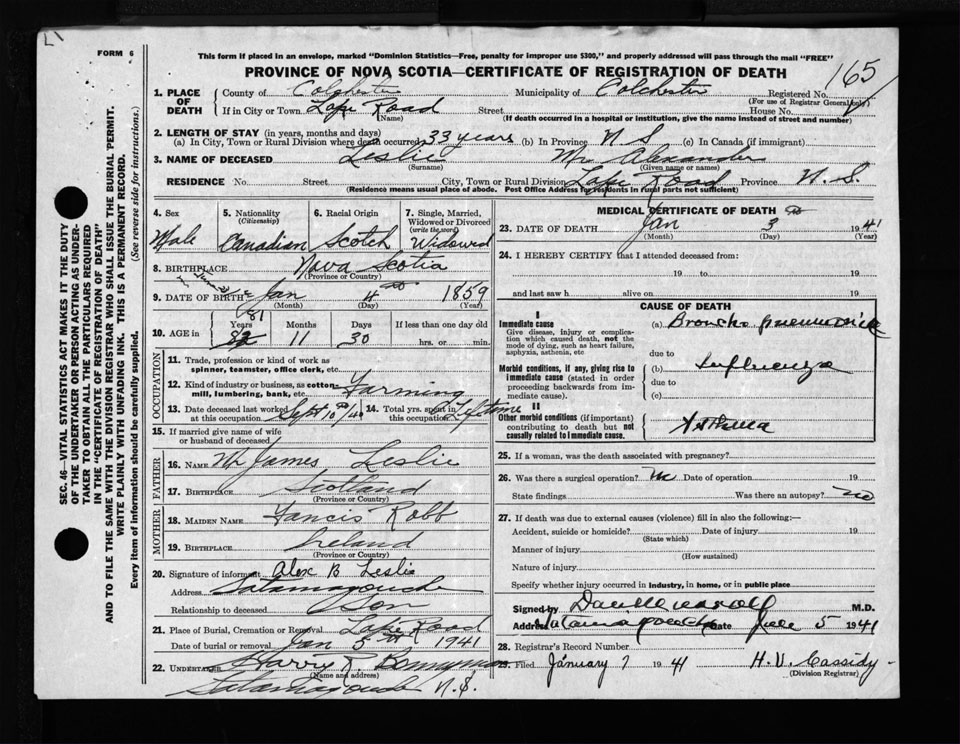 FORM 6
This form if placed in an envelope, marked "Dominion Statistics—Free, penalty for improper use $300," and properly addressed will pass through the mail "FREE"
PROVINCE OF NOVA SCOTIA—CERTIFICATE OF REGISTRATION OF DEATH
165
1. PLACE OF DEATH
County of Colchester Municipality of Colchester Registered No.
(For use of Registrar General only)
If in City or Town Lake Road Street House No.
(Name) (If death occurred in a hospital or institution, give the name instead of street and number)
2. LENGTH OF STAY (in years, months and days)
(a) In City, Town or Rural Division where death occurred 33 years (b) In Province N S (c) In Canada (if immigrant)
3. NAME OF DECEASED Leslie Mr Alexander
(Surname) (Given name or names)
RESIDENCE No. Street City, Town or Rural Division Lake Road Province N. S.
(Residence means usual place of abode. Post Office Address for residents in rural parts not sufficient)
4. Sex 5. Nationality 6. Racial Origin 7. Single, Married, Widowed or Divorced
(Citizenship) (write the word)
Male Canadian Scotch Widowed
8. BIRTHPLACE Nova Scotia
(Province or Country)
9. DATE OF BIRTH Jan 4 1859
(Month) (Day) (Year)
81
10. AGE in Years Months Days If less than one day old
82 11 30 hrs. or min.
OCCUPATION
11. Trade, profession or kind of work as spinner, teamster, office clerk, etc.
12. Kind of industry or business, as cotton-mill, lumbering, bank, etc. Farming
13. Date deceased last worked at this occupation Sept 10 /40 14. Total yrs. spent in this occupation Lifetime
15. If married give name of wife or husband of deceased
FATHER
16. NAME Mr James Leslie
17. BIRTHPLACE Scotland
(Province or Country)
MOTHER
18. MAIDEN NAME Fancis Robb
19. BIRTHPLACE Ireland
(Province or Country)
20. Signature of informant Alex B Leslie
Address Tatamagouche
Relationship to deceased Son
21. Place of Burial, Cremation or Removal Lake Road
Date of burial or removal Jan 5 1941
22. UNDERTAKER Harry R. Bonnyman
(Name and address)
Tatamagouche N.S.
MEDICAL CERTIFICATE OF DEATH
23. DATE OF DEATH Jan 3 1941
(Month) (Day) (Year)
24. I HEREBY CERTIFY that I attended deceased from:
19 to 19
and last saw h alive on 19
CAUSE OF DEATH
I
Immediate cause
Give disease, injury or complication which caused death, not the mode of dying, such as heart failure, asphyxia, asthenia, etc
(a) Broncho pneumonia
due to
Morbid conditions, if any, giving rise to immediate cause (stated in order proceeding backwards from immediate cause).
(b) Influenza
due to
(c)
II
Other morbid conditions (if important) contributing to death but not causally related to immediate cause.
Asthma
25. If a woman, was the death associated with pregnancy?
26. Was there a surgical operation? no Date of operation 19
State findings Was there an autopsy? no
27. If death was due to external causes (violence) fill in also the following:—
Accident, suicide or homicide? Date of injury 19
(State which)
Manner of injury
(How sustained)
Nature of injury
Specify whether injury occurred in industry, in home, or in public place
Signed by M.D.
Address Tatamagouche Date 5 1941
28. Registrar's Record Number
Filed January 7 1941 H. V. Cassidy
(Division Registrar)
SEC. 46—VITAL STATISTICS ACT MAKES IT THE DUTY
OF THE UNDERTAKER OR PERSON ACTING AS UNDER-
TAKER TO OBTAIN ALL THE PARTICULARS REQUIRED
IN THE "CERTIFICATE OF REGISTRATION OF DEATH"
AND TO FILE THE SAME WITH THE DIVISION REGISTRAR WHO SHALL ISSUE THE BURIAL PERMIT.
WRITE PLAINLY WITH UNFADING INK. THIS IS A PERMANENT RECORD.
Every item of information should be carefully supplied. (See reverse side for instructions.)